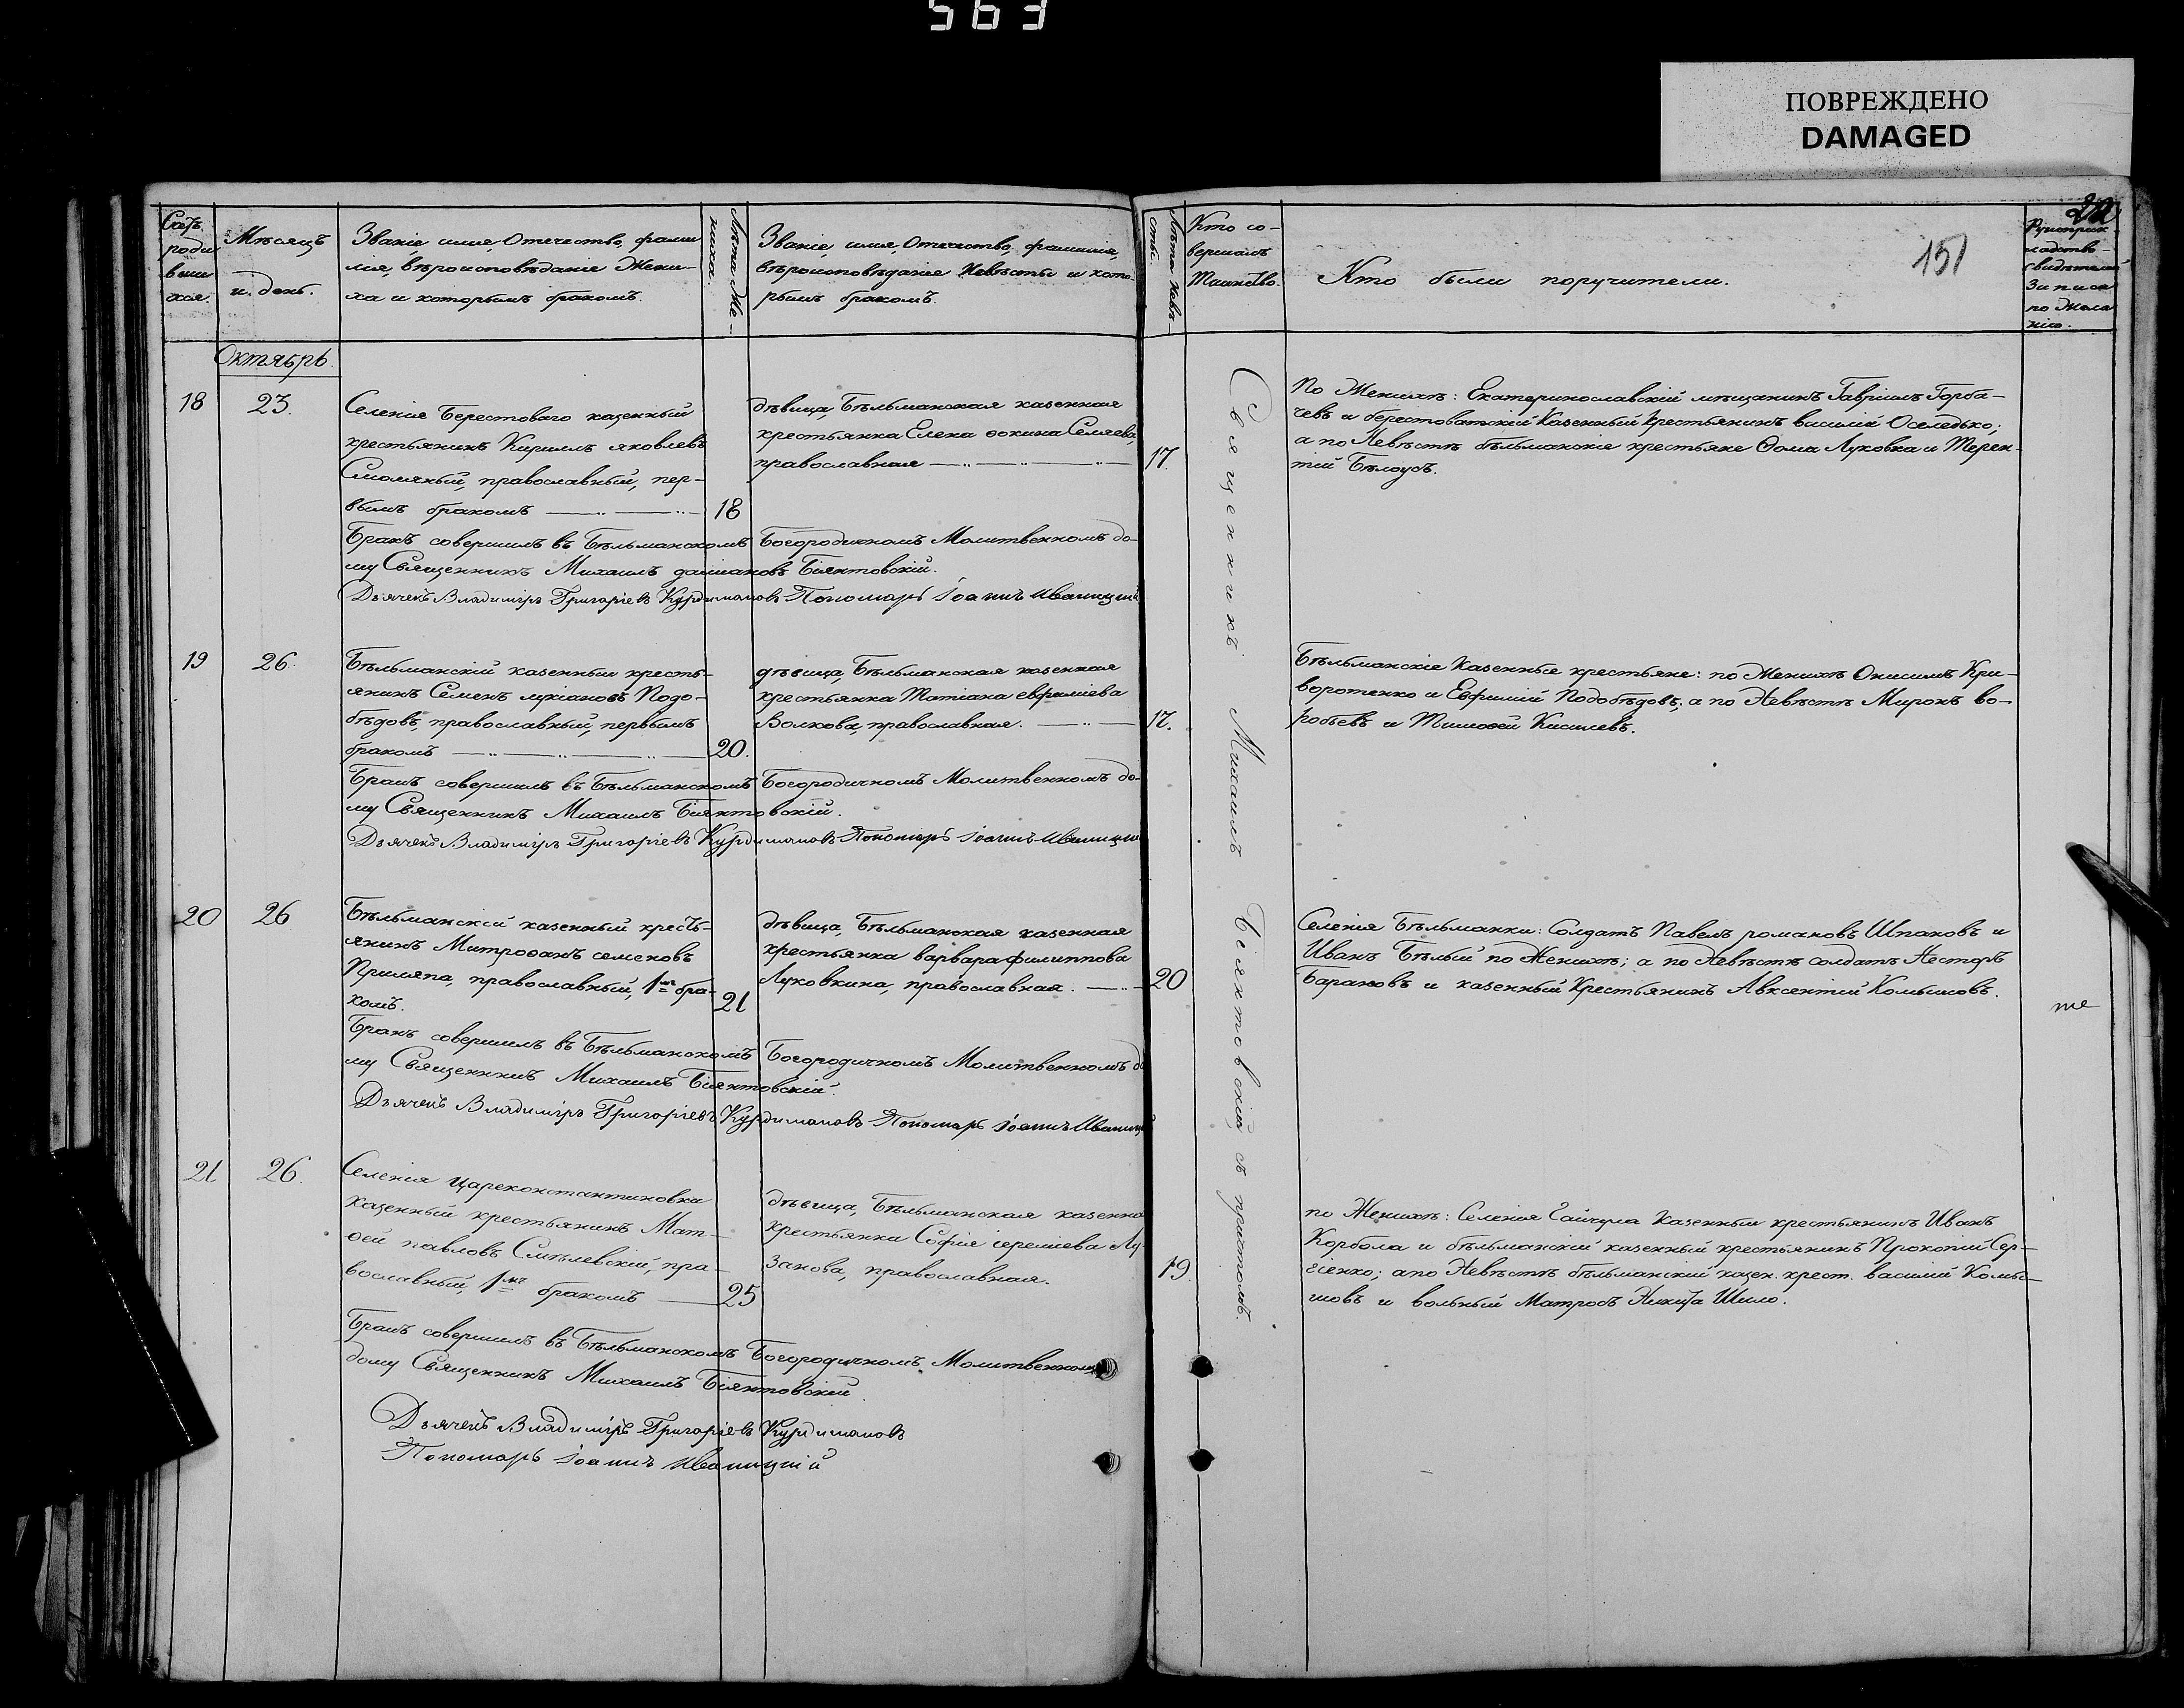 563
ПОВРЕЖДЕНО
DAMAGED
Мѣсяцъ
и день.
Званіе, имя, Отечество, фами
лія, вѣроисповѣданіе Жени-
ха и которымъ бракомъ.
Лѣта Же-
ниха.
Званіе, имя, Отечество, фамилія,
вѣроисповѣданіе Невѣсты и кото-
рымъ бракомъ.
Лѣта Невѣ-
сты.
Кто со-
вершалъ
Таинство.
Кто были поручители.
151
Рукоприк-
ладство
свидѣтелей
записи
по Жела
нію.
Октябрь
18
23.
Селенія Берестоваго казенный
крестьянинъ Кириллъ яковлевъ
Смоляный, православный, пер-
вымъ бракомъ
18
дѣвица, Бѣльманская казенная
крестьянка Елена ѳокина Селяева,
православная
17.
По Женихѣ: Екатеринославскій мѣщанинъ Гавріилъ Горба-
чевъ и берестоватскій Казенный крестьянинъ василій Оселедько;
а по Невѣстѣ бѣльманскіе крестьяне Ѳома Луковка и Терен-
тій Бѣлоусъ.
Бракъ совершилъ въ Бѣльманскомъ Богородичномъ Молитвенномъ до-
му Священникъ Михаилъ Біянтовскій.
Дьячекъ Владиміръ Григоріевъ Курдимановъ Пономарь Іоаннъ Иваницкій
Священникъ Михаилъ Біянтовскій съ причтомъ.
19
26.
Бѣльманскій казенный кресть-
янинъ Семенъ лукіановъ Подо-
бѣдовъ, православный, первымъ
бракомъ
20.
дѣвица, Бѣльманская казенная
крестьянка Татіана евфиміева
Волкова, православная.
17.
Бѣльманскіе Казенные крестьяне: по Женихѣ Онисимъ Кри-
воротенко и Евфимій Подобѣдовъ; а по Невѣстѣ Миронъ во-
робьевъ и Тимоѳей Киселевъ.
Бракъ совершилъ въ Бѣльманскомъ Богородичномъ Молитвенномъ до-
му Священникъ Михаилъ Біянтовскій.
Дьячекъ Владиміръ Григоріевъ Курдимановъ Пономарь Іоаннъ Иваницкій
20
26
Бѣльманскій казенный кресть-
янинъ Митрофанъ семеновъ
Приляпа, православный, 1мъ бра-
комъ.
21
дѣвица, Бѣльманская казенная
крестьянка варвара филиппова
Луковкина, православная.
20
Селенія Бѣльманки: Солдатъ Павелъ романовъ Шпаковъ и
Иванъ Бѣлый по Женихѣ; а по Невѣстѣ солдатъ Несторъ
Барановъ и казенный Крестьянинъ Авксентій Комышовъ.
Бракъ совершилъ въ Бѣльманскомъ Богородичномъ Молитвенномъ до
му Священникъ Михаилъ Біянтовскій.
Дьячекъ Владиміръ Григоріевъ Курдимановъ Пономарь Іоаннъ Иваницкій
21
26.
Селенія Цареконстантиновки
казенный крестьянинъ Мат-
ѳей павловъ Смѣлевскій, пра-
вославный, 1мъ бракомъ
25
дѣвица, Бѣльманская казенная
крестьянка Софія іереміева Лу-
занова, православная.
19.
по Женихѣ: Селенія Гайчула Казенный крестьянинъ Иванъ
Корбола и бѣльманскій казенный крестьянинъ Прокопій Сер-
гіенко; а по Невѣстѣ бѣльманскій казен. крест. василій Комы-
шовъ и вольный Матросъ Никита Шило.
Бракъ совершилъ въ Бѣльманскомъ Богородичномъ Молитвенномъ
дому Священникъ Михаилъ Біянтовскій.
Дьячекъ Владиміръ Григоріевъ Курдимановъ
Пономарь Іоаннъ Иваницкій